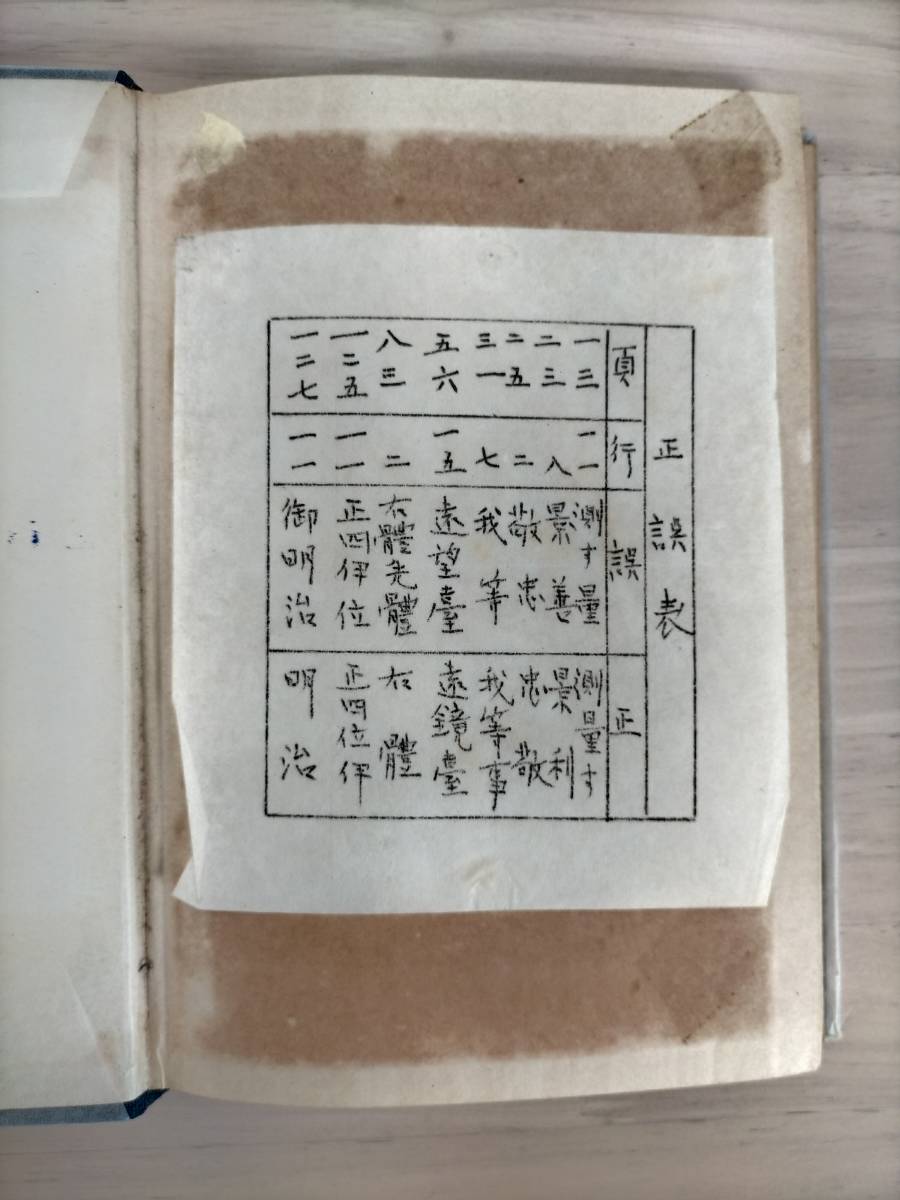 正誤表
頁 行 誤 正
一三 一一 測す量 測量す
二三 八 景善 景利
二五 二 敬忠 忠敬
三一 七 我等 我等事
五六 一五 遠望臺 遠鏡臺
八三 二 右體先體 右體
一二五 一一 正四伊位 正四位伊
一二七 一一 御明治 明治